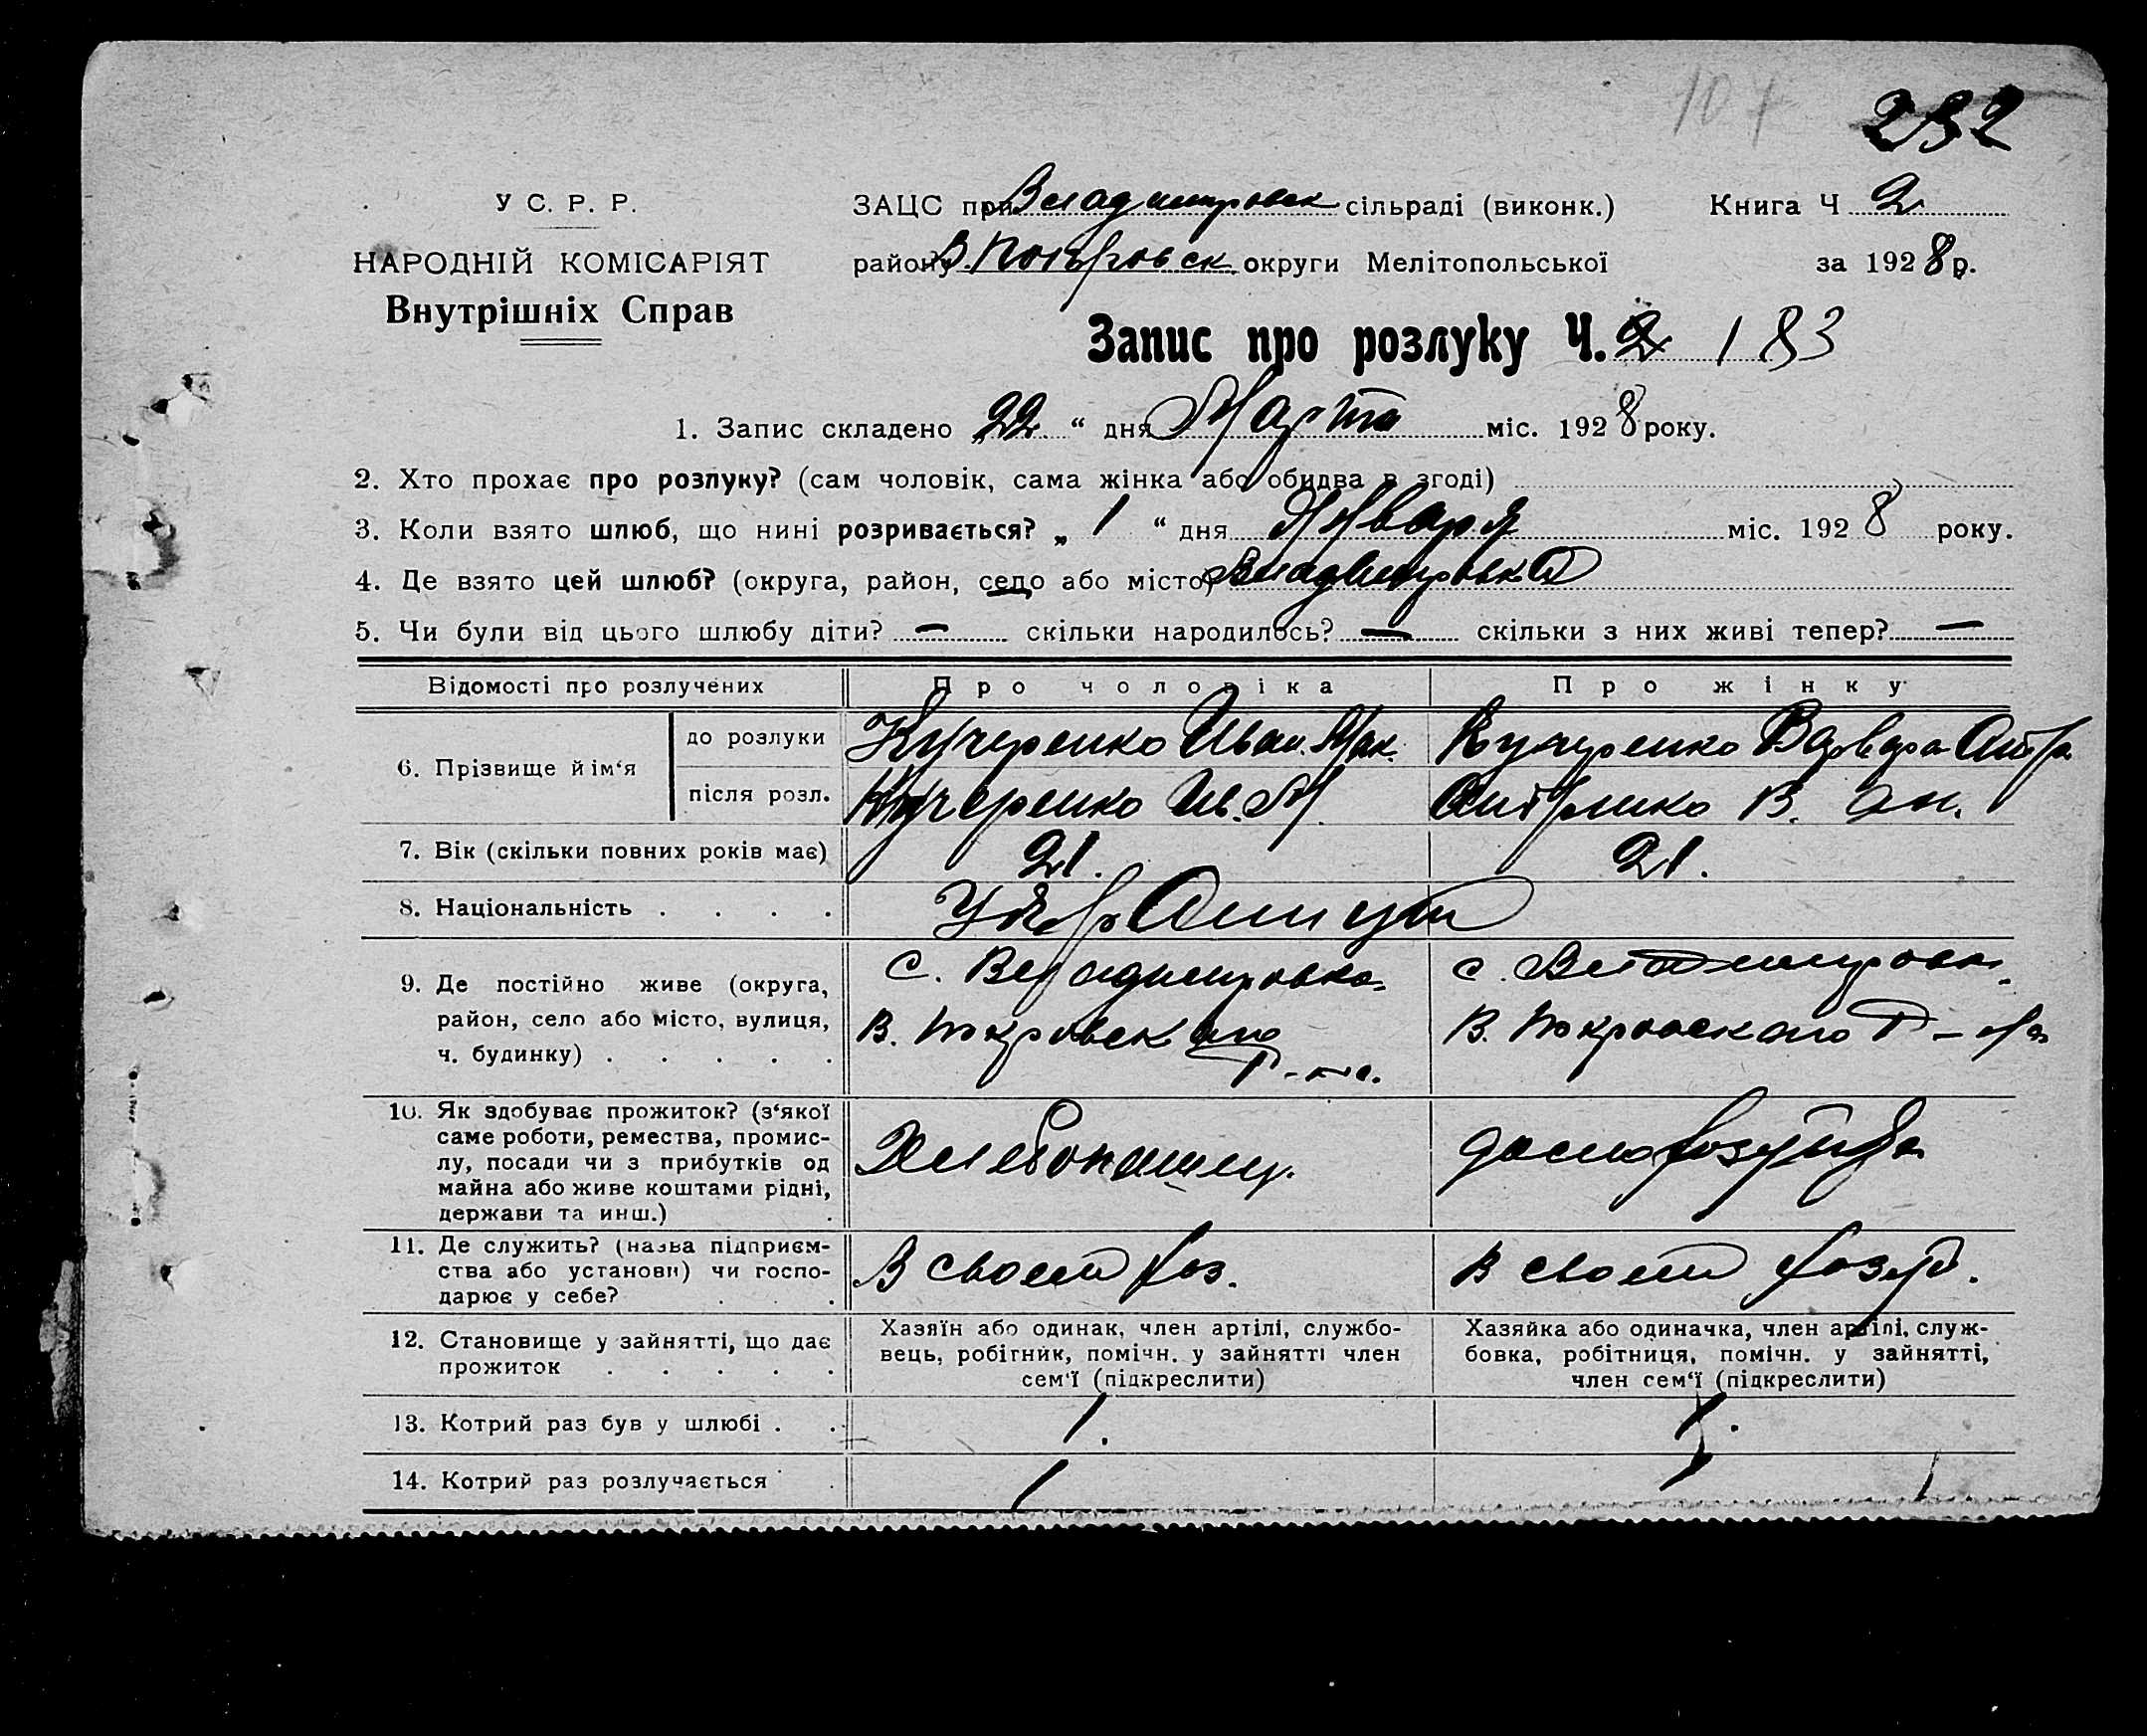 107
232
У С. Р. Р.
НАРОДНІЙ КОМІСАРІЯТ
Внутрішніх Справ
ЗАЦС при Владимировск сільраді (виконк.) Книга Ч 2
району В. Покровск. округи Мелітопольської за 1928 р.
Запис про розлуку Ч. 2 183
1. Запис складено „22“ дня Марта міс. 1928 року.
2. Хто прохає про розлуку? (сам чоловік, сама жінка або обидва в згоді)
3. Коли взято шлюб, що нині розривається? „1“ дня Января міс. 1928 року.
4. Де взято цей шлюб? (округа, район, село або місто) Владимировка
5. Чи були від цього шлюбу діти? — скільки народилось? — скільки з них живі тепер? —
Відомості про розлучених Про чоловіка Про жінку
6. Прізвище й ім‘я
до розлуки Кучеренко Иван. Мак. Кучеренко Варвара
після розл. Кучеренко Ив. М. В. Ан.
7. Вік (скільки повних років має) 21. 21.
8. Національність . . . .
9. Де постійно живе (округа, район, село або місто, вулиця, ч. будинку) . . . . .
с. Владимировка
В. Покровского Р-на.
с. Владимировк.
В. Покровского Р-на
10. Як здобуває прожиток? (з‘якої саме роботи, ремества, промислу, посади чи з прибутків од майна або живе коштами рідні, держави та инш.) .
Хлебопашец.
домохозяйка
11. Де служить? (назва підприємства або установи) чи господарює у себе? . . .
В своем хоз.
В своем хозяй.
12. Становище у зайнятті, що дає прожиток . . . . .
Хазяїн або одинак, член артілі, службовець, робітник, помічн. у зайнятті член сем‘ї (підкреслити)
Хазяйка або одиначка, член артілі, службовка, робітниця, помічн. у зайнятті, член сем‘ї (підкреслити)
13. Котрий раз був у шлюбі . . 1. 1.
14. Котрий раз розлучається . 1 1